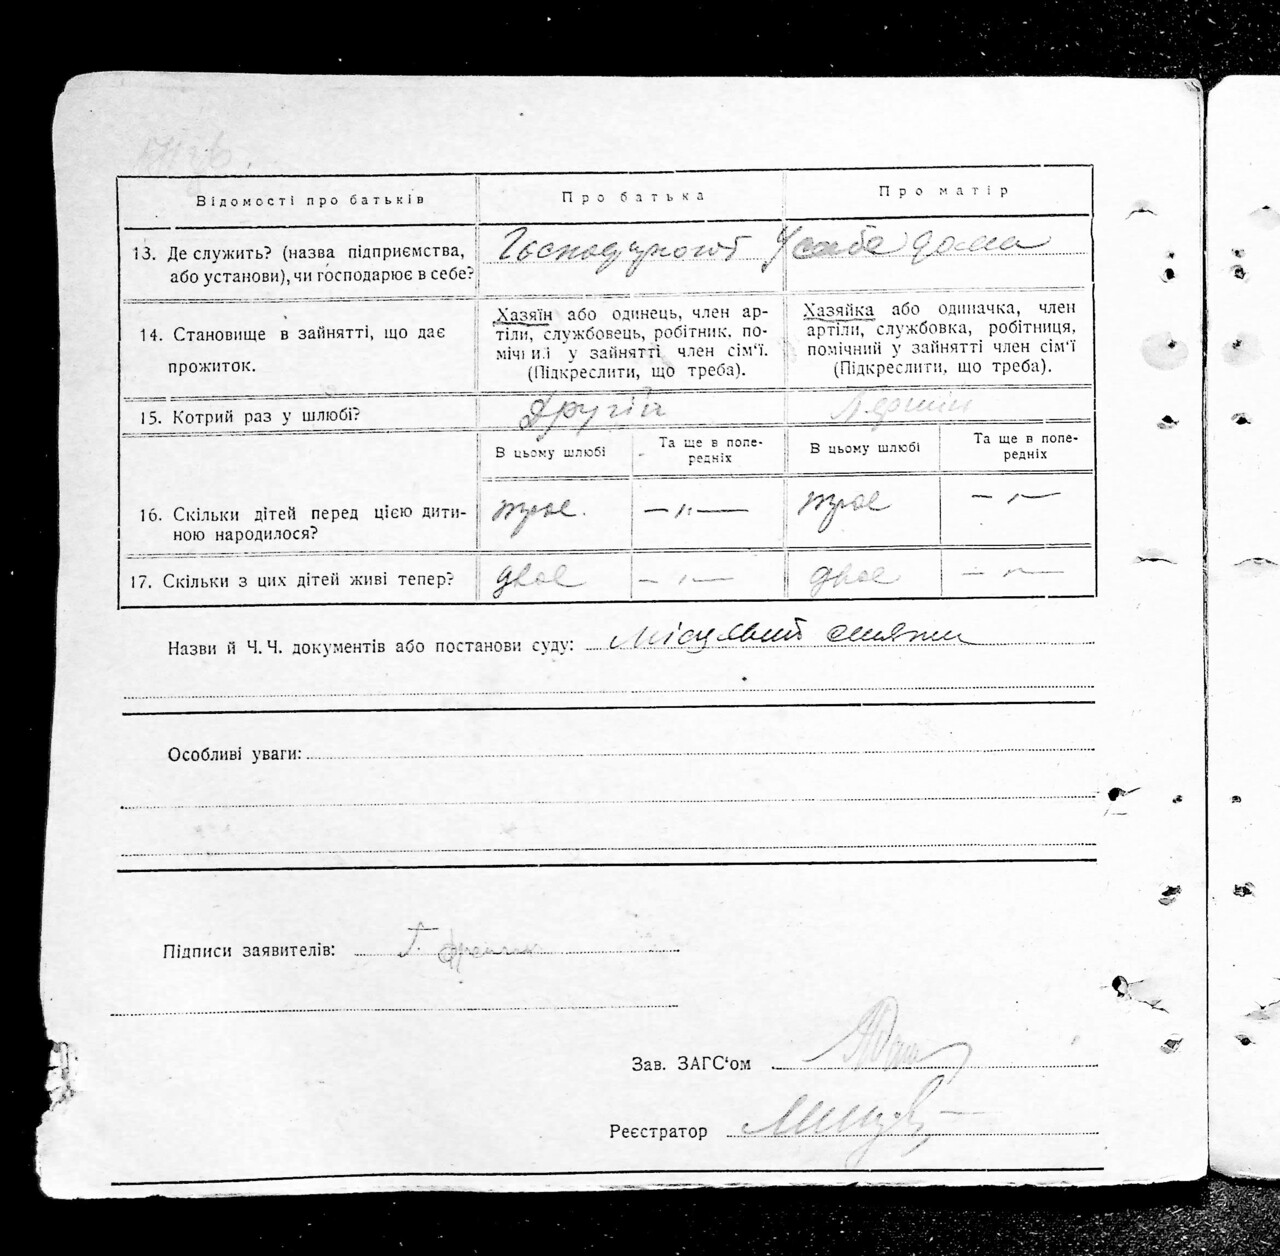 Відомості про батьків
Про батька
Про матір
13. Де служить? (назва підприємства,
або установи), чи господарює в себе?
Господарюют У себе дома
14. Становище в зайнятті, що дає
прожиток.
Хазяїн або одинець, член ар-
тіли, службовець, робітник, по-
мічний у зайнятті член сім'ї.
(Підкреслити, що треба).
Хазяйка або одиначка, член
артіли, службовка, робітниця,
помічний у зайнятті член сім'ї
(Підкреслити, що треба).
15. Котрий раз у шлюбі?
Другій
Первий
В цьому шлюбі
Та ще в попе-
редніх
В цьому шлюбі
Та ще в попе-
редніх
16. Скільки дітей перед цією дити-
ною народилося?
трое.
— " —
трое
— " —
17. Скільки з цих дітей живі тепер?
двое
— " —
двое
— " —
Назви й Ч. Ч. документів або постанови суду: Місцевий
Особливі уваги:
Підписи заявителів:
Зав. ЗАГС'ом
Реєстратор